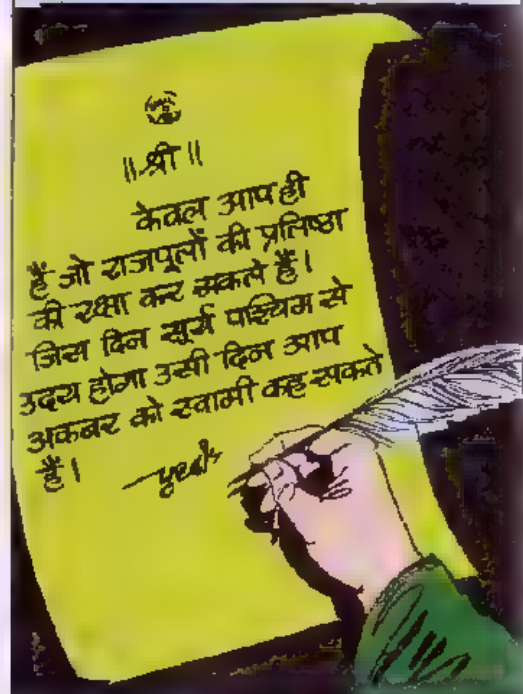 ॥ श्री ॥
केवल आप ही
हैं जो राजपूतों की प्रतिष्ठा
की रक्षा कर सकते हैं।
जिस दिन सूर्य पश्चिम से
उदय होगा उसी दिन आप
अकबर को स्वामी कह सकते
हैं।